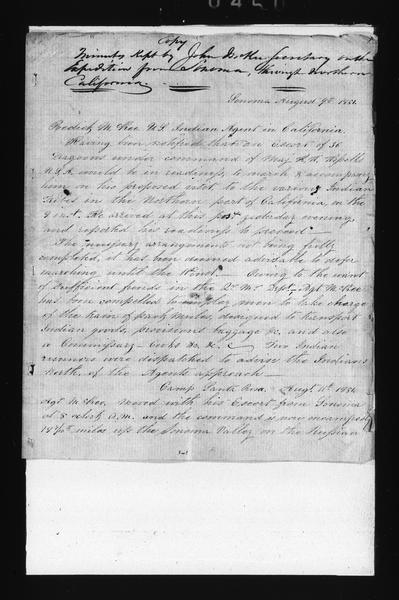 Copy
Minutes Kept by John McKee Secretary on the
Expedition from Sonoma, through Northern
California
Sonoma August 9th 1851.
Redick McKee U.S. Indian Agent in California.
Having been notified that an Escort of 36
Dragoons under command of Maj. H. W. Wessells
U.S.A. would be in readiness to march & accompany
him on his proposed visit to the various Indian
tribes in the Northern part of California on the
9 inst. He arrived at this post yesterday evening,
and reported his readiness to proceed.
The necessary arrangements not being fully
completed, it has been deemed advisable to defer
marching until the 11th inst. Owing to the want
of sufficient funds in the Qr. Mr. Dept. Agt McKee
has been compelled to employ men to take charge
of the train of pack mules designed to transport
Indian goods, provisions baggage &c, and also
a Commissary - Cooks &c &c. Two Indian
runners were dispatched to advise the Indians
north, of the Agents approach
Camp Santa Rosa Augt 11th 1851
Agt McKee, moved with his Escort from Sonoma
at 8 oclock A.M. and the command is now encamped
miles up the Sonoma Valley on the Russian